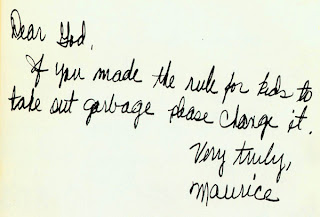 Dear God,
If you made the rule for kids to
take out garbage please change it.
Very truly,
Maurice